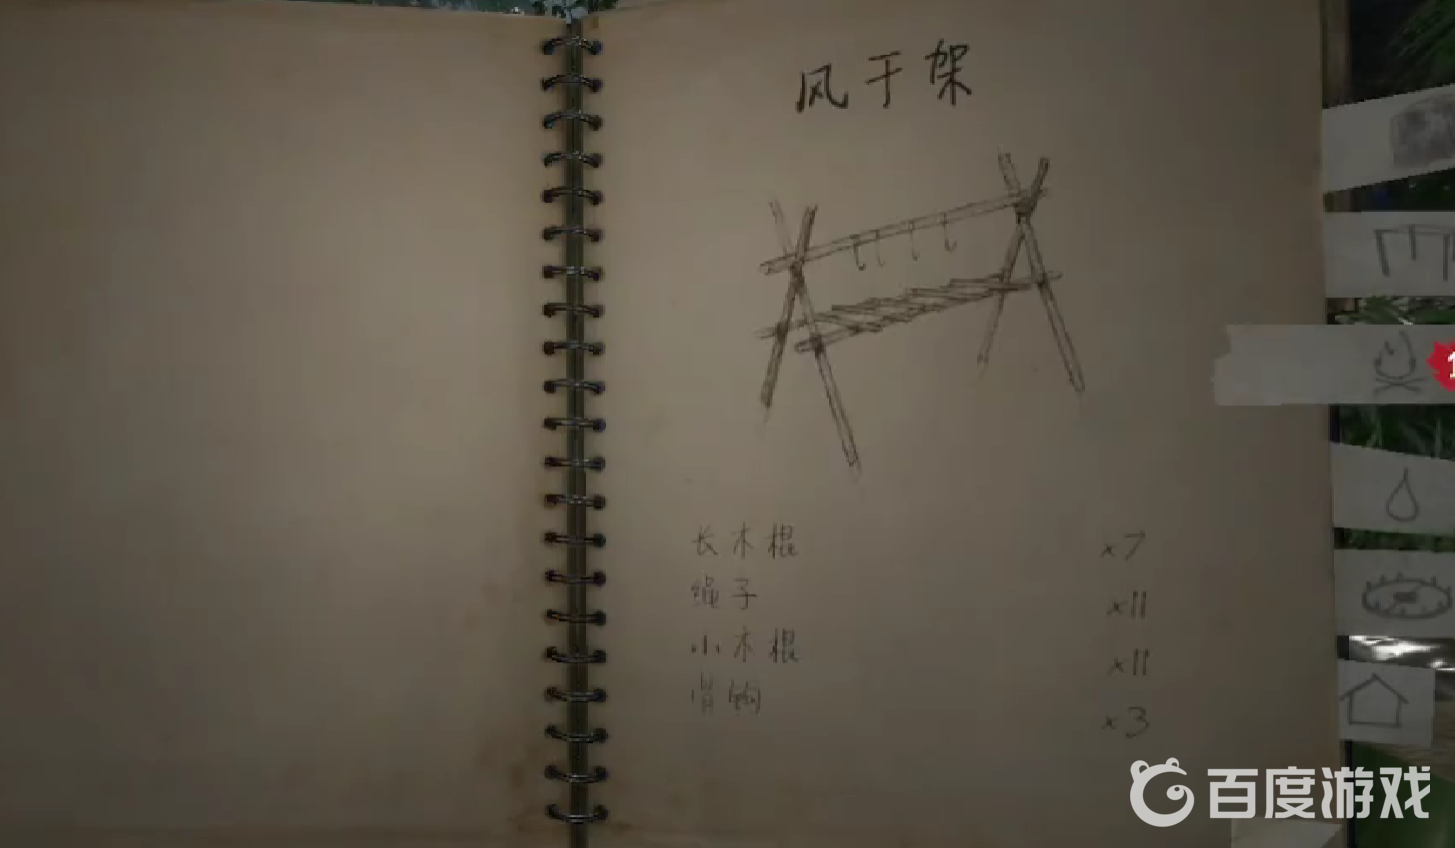 风干架
长木棍 x7
绳子 x11
小木棍 x11
骨钩 x3
1
百度游戏